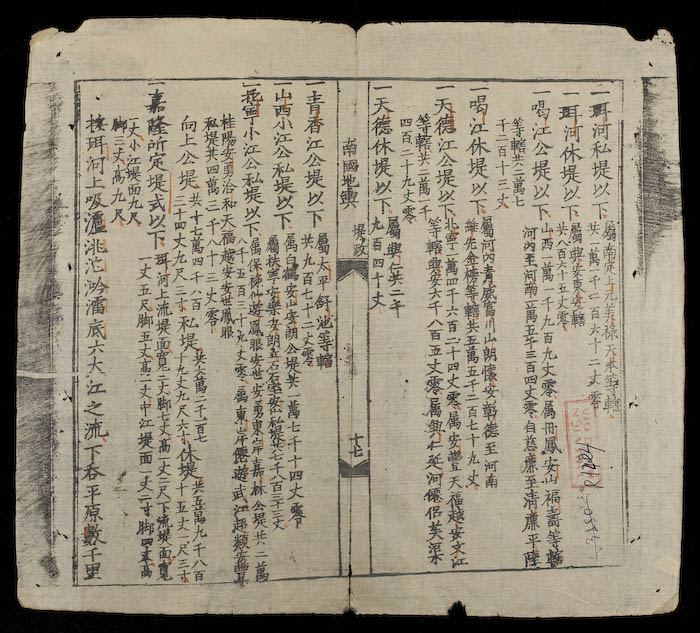 一珥河私堤以下
共二萬一千一百六十二丈零
一珥河休堤以下
屬興安東安等轄
共八百六十五丈零
一喝江公堤以下
山西一萬一千九百九丈零屬冊鳳安山福壽等轄
河內至河南五萬五千三百四丈零自慈廉至清廉平陸
等轄共二萬七
千二百十三丈
一喝江休堤以下
屬河內青威富川山朗懷安彰德至河南
維先金榜等轄共五萬五千二百七十九丈
一天德江公堤以下
北寧一萬四千六百二十四丈零屬安豐天福越安文江
等轄興安六千八百五丈零屬興仁延河僊侶芙渠
等轄共二萬一千
四百二十九丈零
一天德休堤以下
屬興仁共二千
九百四十丈
南國地輿 堤政 十七
一青香江公堤以下
屬太平舒池等轄
共九百七十二丈零
一山西小江公私堤以下
屬白鶴安山安朗公堤共一萬七千十四丈零
屬扶寧安樂安朗立石
一北寧小江公私堤以下
屬保祿仙遊鳳眼安世安勇東岸嘉林公堤共二萬
八千五百三十九丈零屬東岸僊遊武江超類安豐
桂陽安勇洽和天福越安安世鳳眼
私堤共四萬三千八十三丈零
向上公堤
共十七萬四千八百
三十四丈九尺三寸
私堤
共六萬二千二百七
十九丈九尺六寸
休堤
共五萬九千八百
十五丈一尺三寸
一嘉隆所定堤式以下
珥河上流堤面寬二丈脚七丈高一丈二尺下流堤面寬
一丈五尺脚五丈高一丈中江堤面一丈二寸脚四丈高
一丈小江堤面九尺
脚三丈高九尺
按珥河上吸瀘洮沱吟潘底六大江之流下吞平原數千里